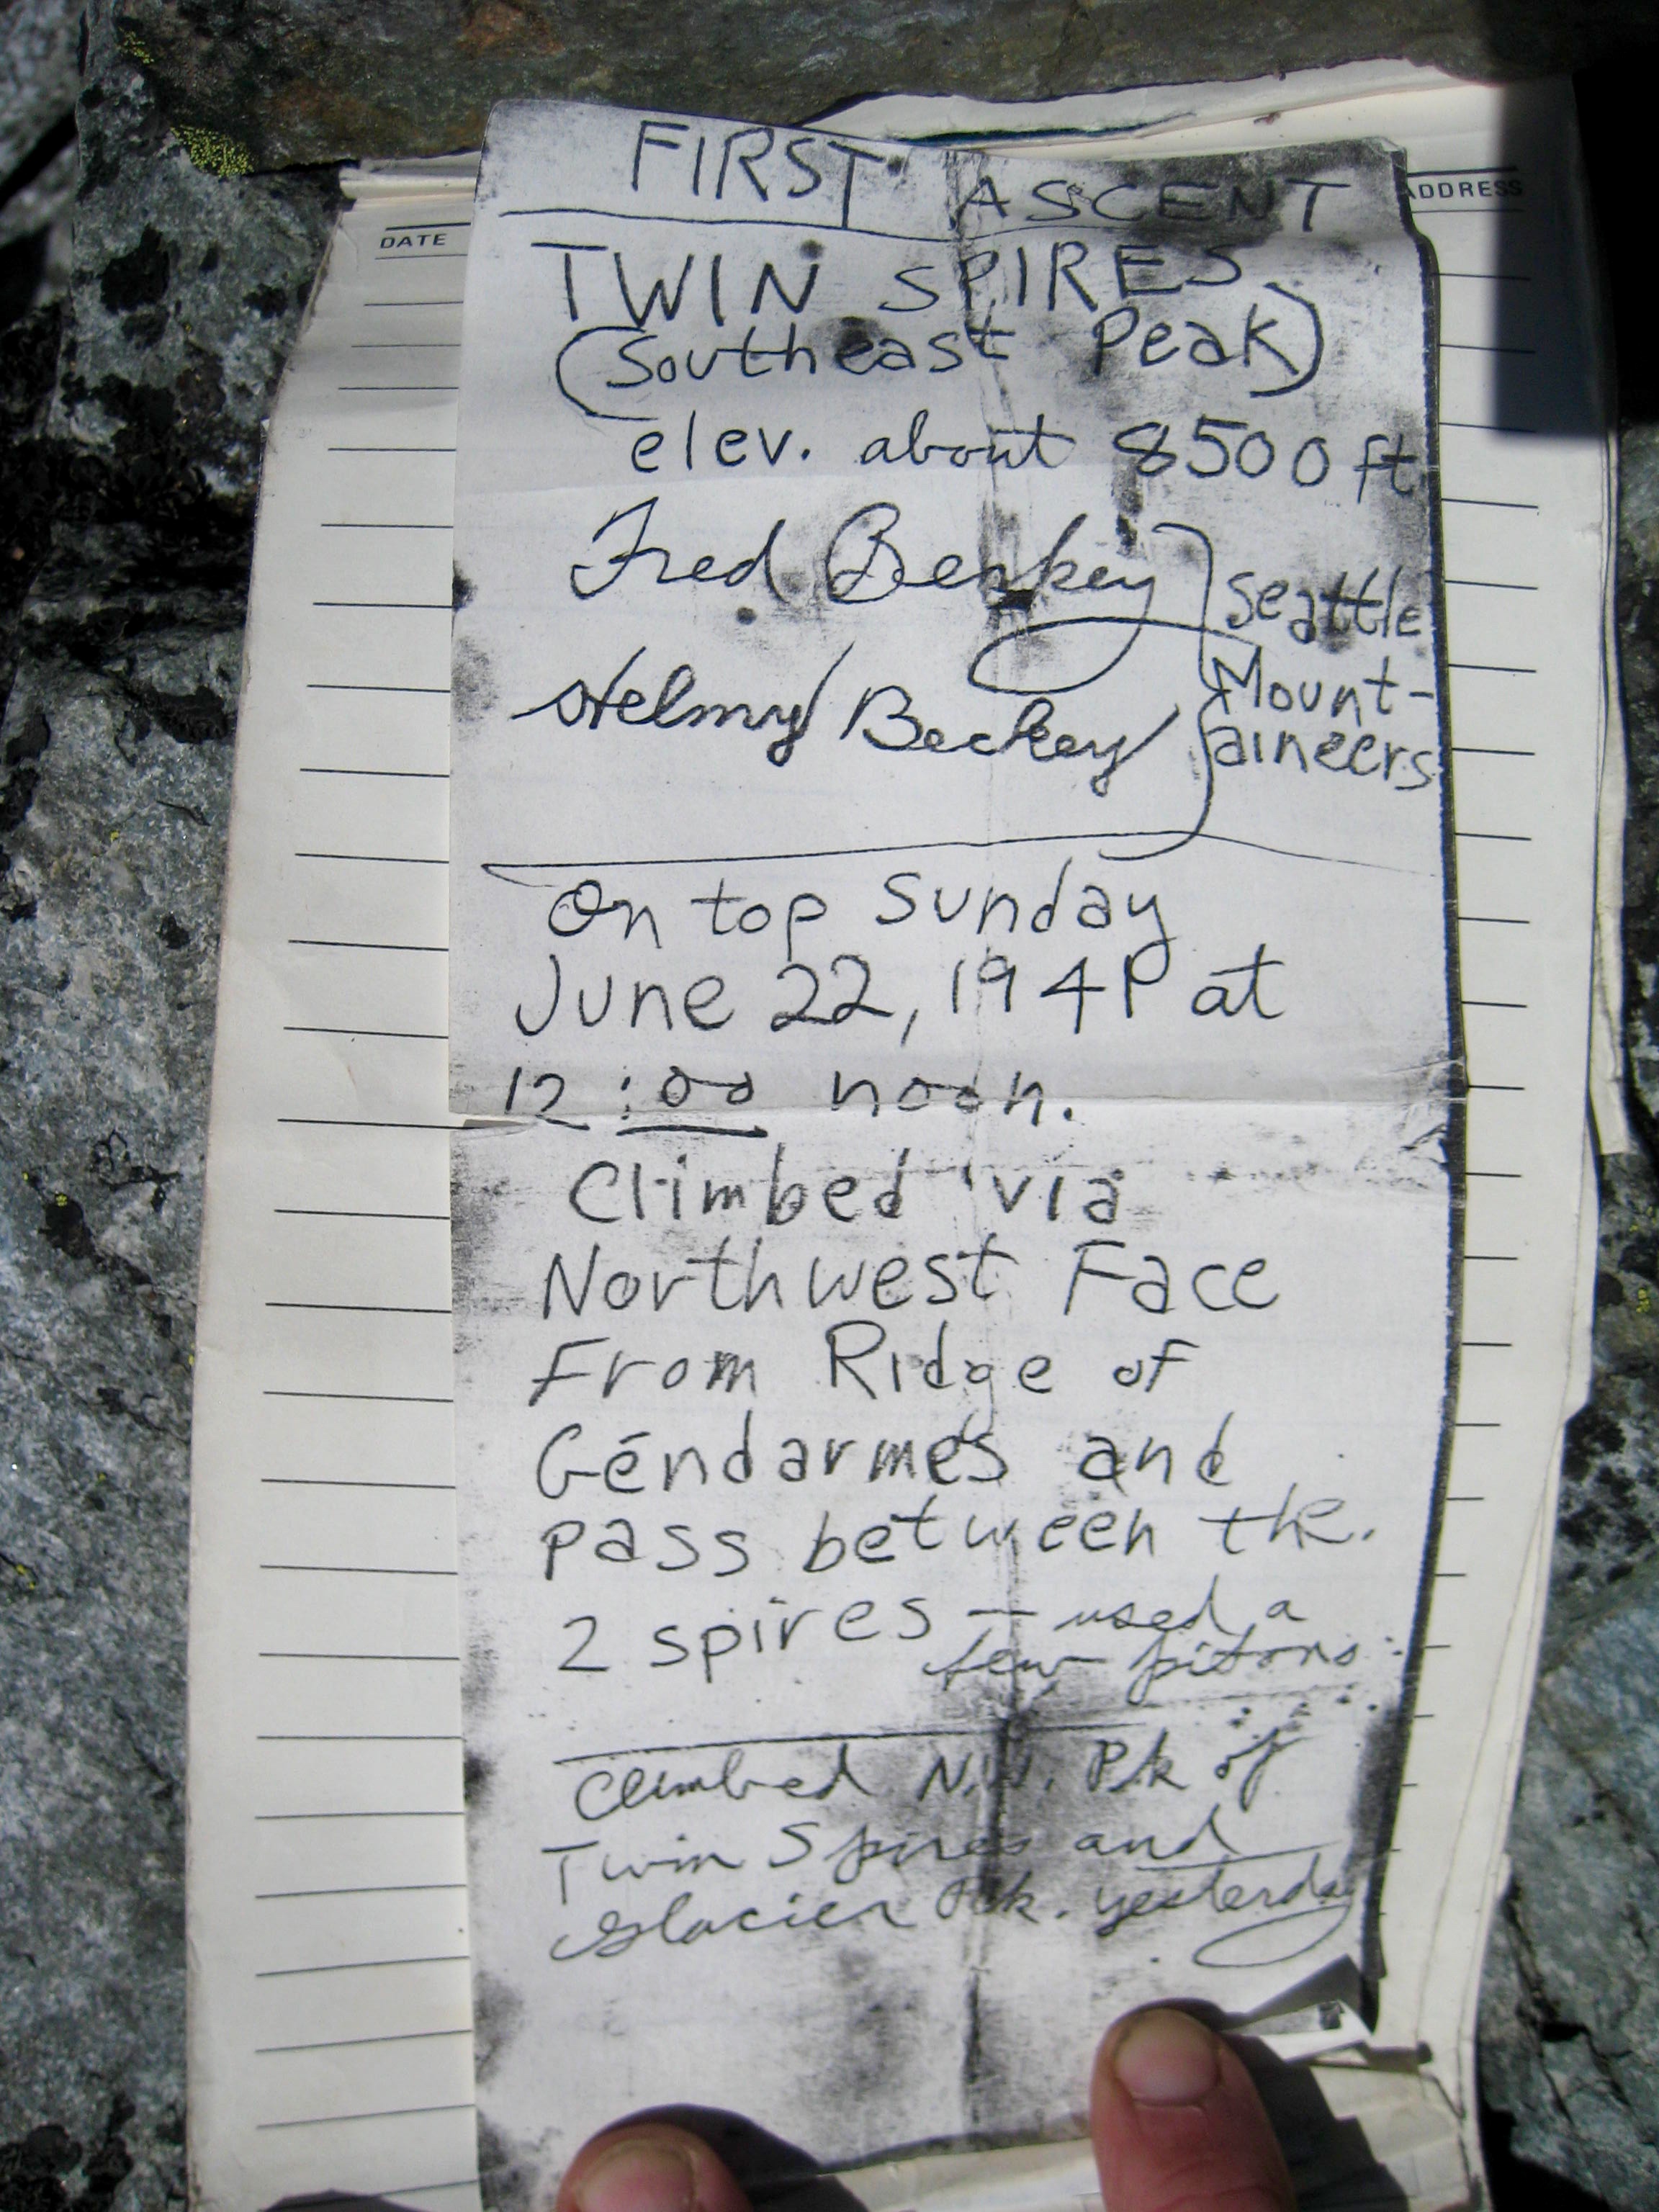 DATE
ADDRESS
FIRST ASCENT
TWIN SPIRES
(Southeast Peak)
elev. about 8500 ft
Fred Beckey
Helmy Beckey
Seattle
Mount-
aineers
On top Sunday
June 22, 1941 at
12:00 noon.
Climbed via
Northwest Face
From Ridge of
Gendarmes and
pass between the
2 spires — used a
few pitons
Climbed N.W. Pk of
Twin Spires and
Glacier Pk. yesterday